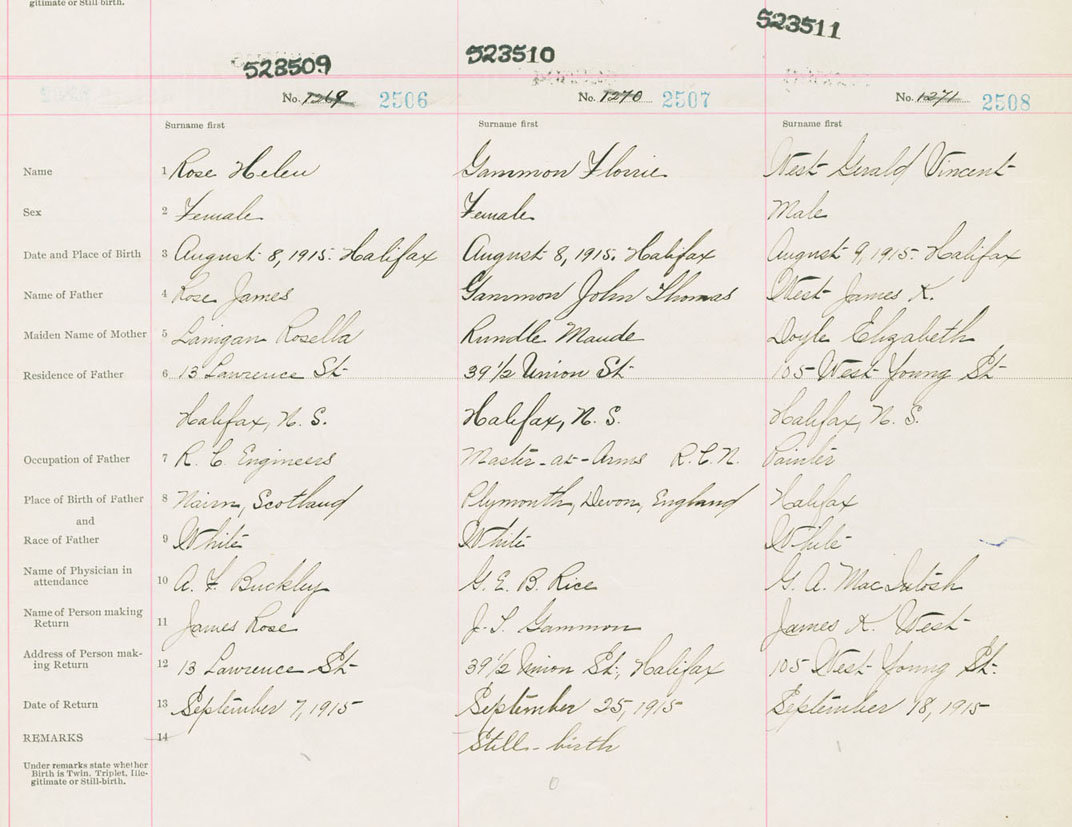 gitimate or Still-birth.
523509 523510 523511
No. 1269 2506 No. 1270 2507 No. 1271 2508
Surname first Surname first Surname first
Name 1 Rose Helen Gammon Florrie West Gerald Vincent
Sex 2 Female Female Male
Date and Place of Birth 3 August 8, 1915. Halifax August 8, 1915. Halifax August 9, 1915. Halifax
Name of Father 4 Rose James Gammon John Thomas West James K.
Maiden Name of Mother 5 Lanigan Rosella Rundle Maude Doyle Elizabeth
Residence of Father 6 13 Lawrence St 39 1/2 Union St 105 West Young St
Halifax, N. S. Halifax, N. S. Halifax, N. S.
Occupation of Father 7 R. C. Engineers Master-at-Arms R.C.N. Painter
Place of Birth of Father 8 Nairn, Scotland Plymouth, Devon, England Halifax
and
Race of Father 9 White White White
Name of Physician in
attendance 10 A. F. Buckley G. E. B. Rice G. A. MacIntosh
Name of Person making
Return 11 James Rose J. T. Gammon James K. West
Address of Person mak-
ing Return 12 13 Lawrence St 39 1/2 Union St., Halifax 105 West Young St.
Date of Return 13 September 7, 1915 September 25, 1915 September 18, 1915
REMARKS 14 Still-birth
Under remarks state whether
Birth is Twin, Triplet, Ille-
gitimate or Still-birth.